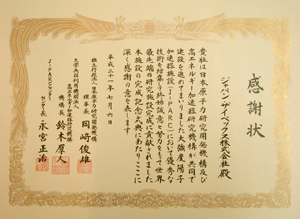 感謝状
ジャパンザイベックス株式会社殿
貴社は日本原子力研究開発機構及び
高エネルギー加速器研究機構が共同で
建設を進めてまいりました大強度陽子
加速器施設(J-PARC)において優秀な
技術を結集し終始誠意と努力をもって世界
最先端の研究施設完成に貢献されました
本施設の完成記念式典にあたりここに
深く感謝の意を表します
平成二十一年七月六日
独立行政法人日本原子力研究開発機構
理事長 岡﨑俊雄
大学共同利用機関法人
高エネルギー加速器研究機構
機構長 鈴木厚人
J-PARCセンター
センター長 永宮正治